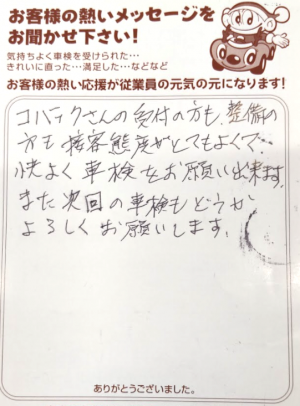 お客様の熱いメッセージを
お聞かせ下さい!
気持ちよく車検を受けられた…
きれいに直った…満足した…などなど
お客様の熱い応援が従業員の元気の元になります!
コバテクさんの受付の方も、整備の
方も接客態度がとてもよくて…
快よく車検をお願い出来ます。
また次回の車検もどうか
よろしくお願いします。
ありがとうございました。